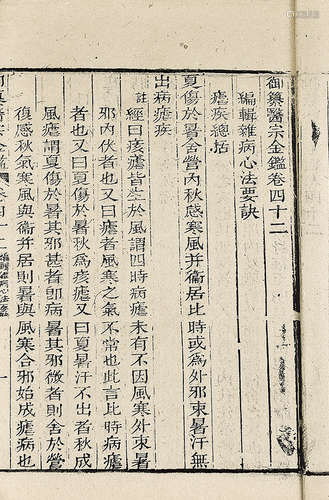 御纂醫宗金鑑卷四十二
編輯雜病心法要訣
瘧疾總括
夏傷於暑舍營內秋感寒風并衞居比時或為外邪束暑汗無
出病瘧疾
註
經曰痎瘧皆生於風謂四時病瘧未有不因風寒外束暑
邪內伏者也又曰瘧者風寒之氣不常也此言比時病瘧
者也又曰夏傷於暑秋為痎瘧又曰夏暑汗不出者秋成
風瘧謂夏傷於暑其邪甚者即病暑其邪微者則舍於營
復感秋氣寒風與衞并居則暑與風寒合邪始成瘧病也